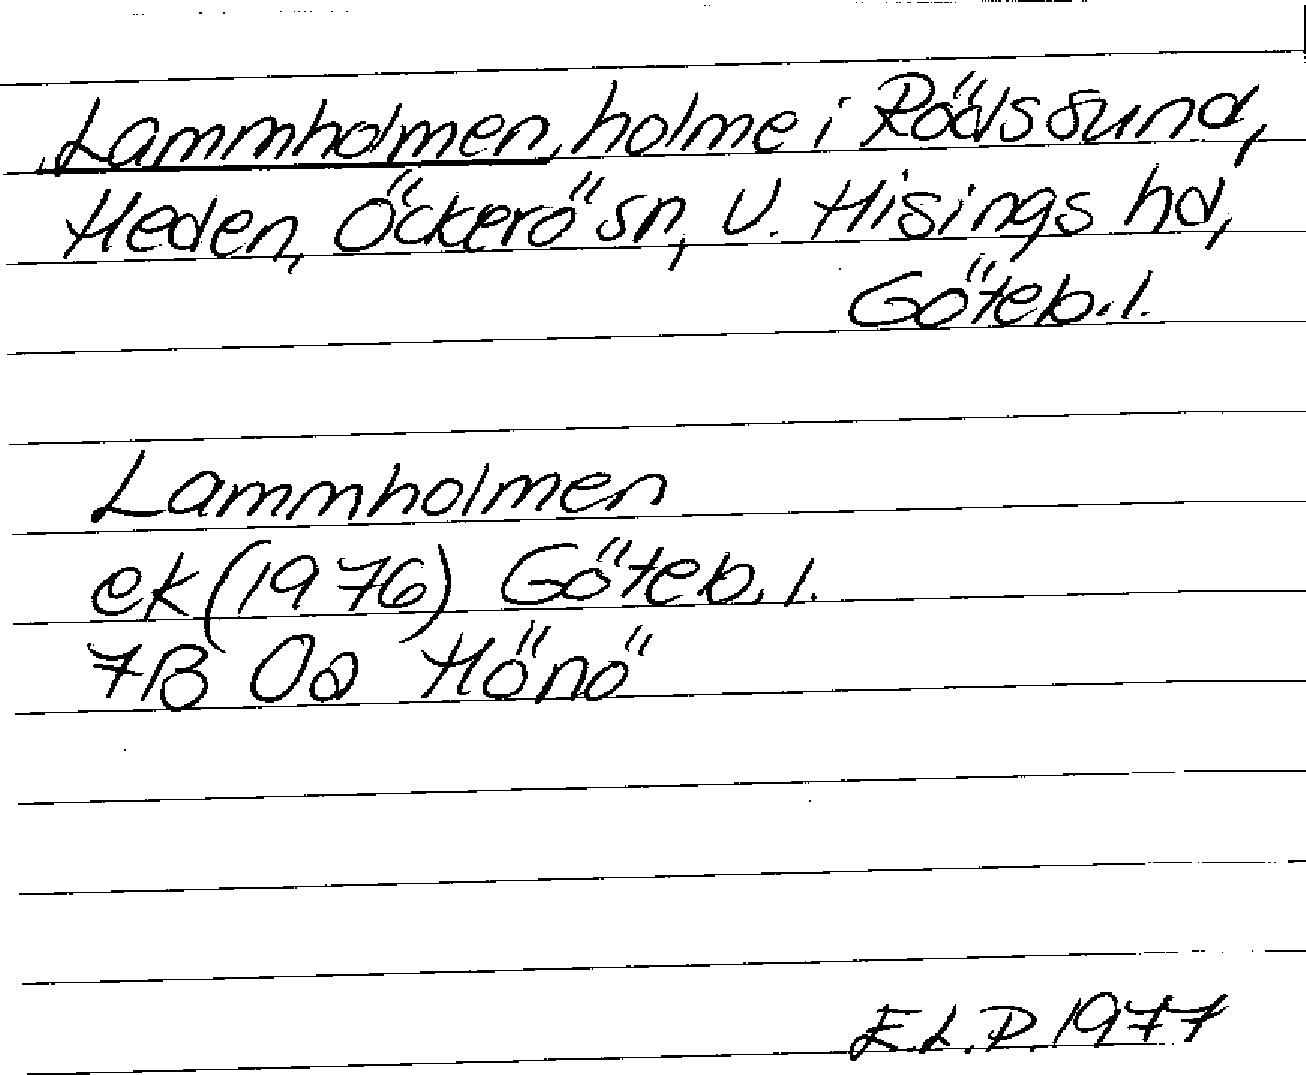 Lammholmen, holme i Rödssund,
Heden, Öckerö sn, V. Hisings hd,
Göteb.l.
Lammholmen
ek (1976) Göteb.l.
7B 0a Hönö
E.L.P. 1977